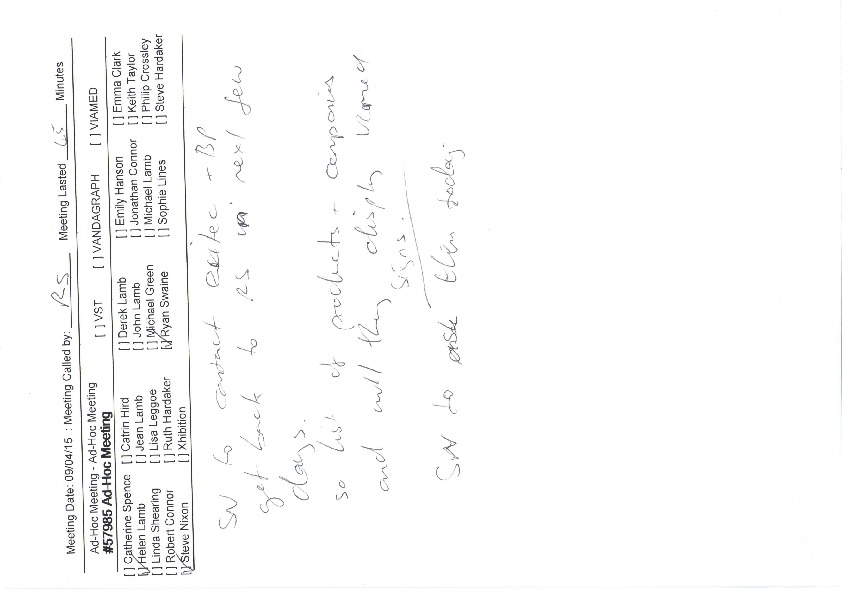 Meeting Date: 09/04/15 : Meeting Called by: RS Meeting Lasted 65 Minutes
Ad-Hoc Meeting - Ad-Hoc Meeting [ ] VST [ ] VANDAGRAPH [ ] VIAMED
#57985 Ad-Hoc Meeting
[ ] Catherine Spence [ ] Catrin Hird [ ] Derek Lamb [ ] Emily Hanson [ ] Emma Clark
[✓] Helen Lamb [ ] Jean Lamb [ ] John Lamb [ ] Jonathan Connor [ ] Keith Taylor
[ ] Linda Shearing [ ] Lisa Leggoe [ ] Michael Green [ ] Michael Lamb [ ] Philip Crossley
[ ] Robert Connor [ ] Ruth Hardaker [✓] Ryan Swaine [ ] Sophie Lines [ ] Steve Hardaker
[✓] Steve Nixon [ ] Xhibition
SN to contact + BP
get back to RS next few
days.
so list of products + companies
and will they display
signs.
SN to ask them today.